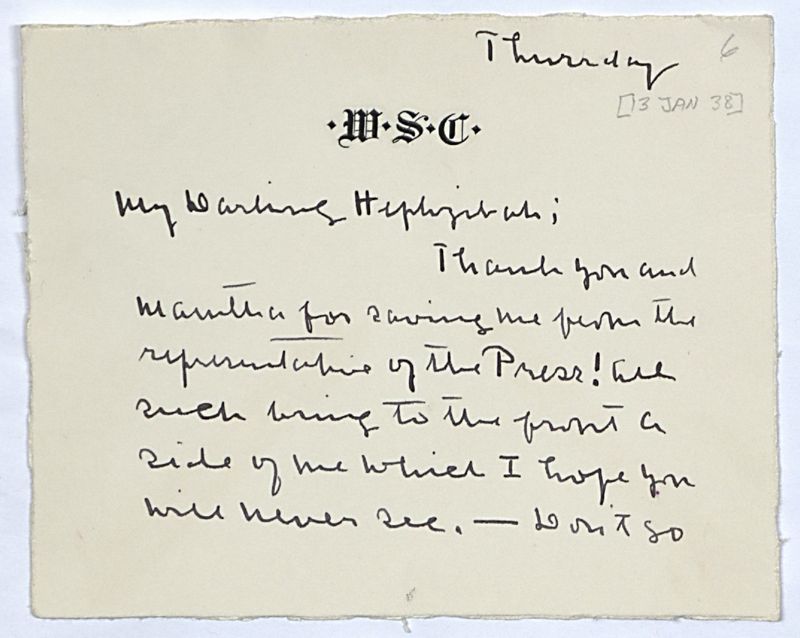 Thursday
6
[13 JAN 38]
·W·S·C·
My Darling Hephzibah;
Thank you and
Martha for saving me from the
representative of the Press! All
such bring to the front a
side of me which I hope you
will never see. — Don't go